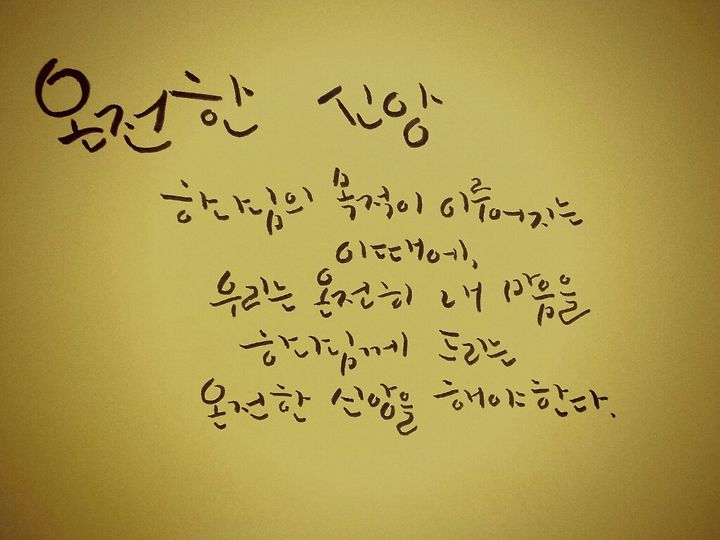 온전한 신앙
하나님의 목적이 이루어지는
이때에,
우리는 온전히 내 마음을
하나님께 드리는
온전한 신앙을 해야한다.